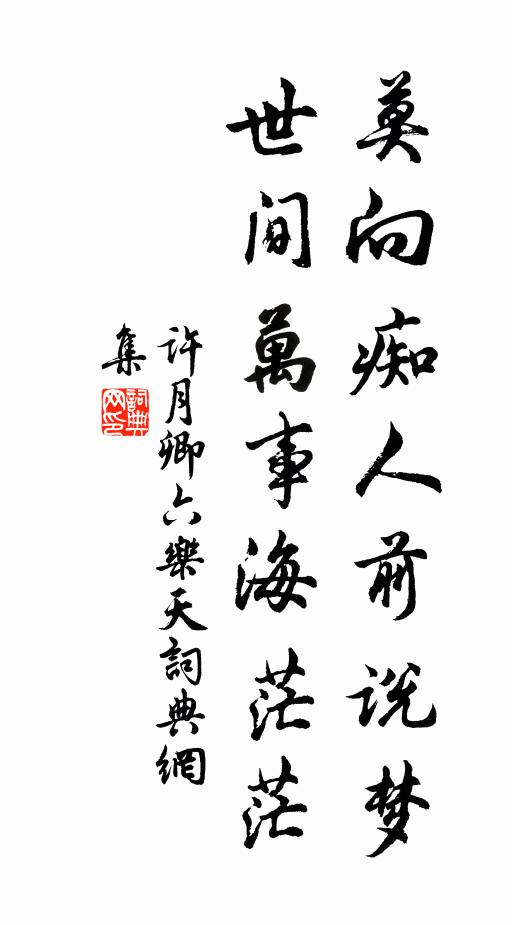 莫向痴人前说梦
世间萬事海茫茫
许月卿六樂天詞典網
集
詞典网印